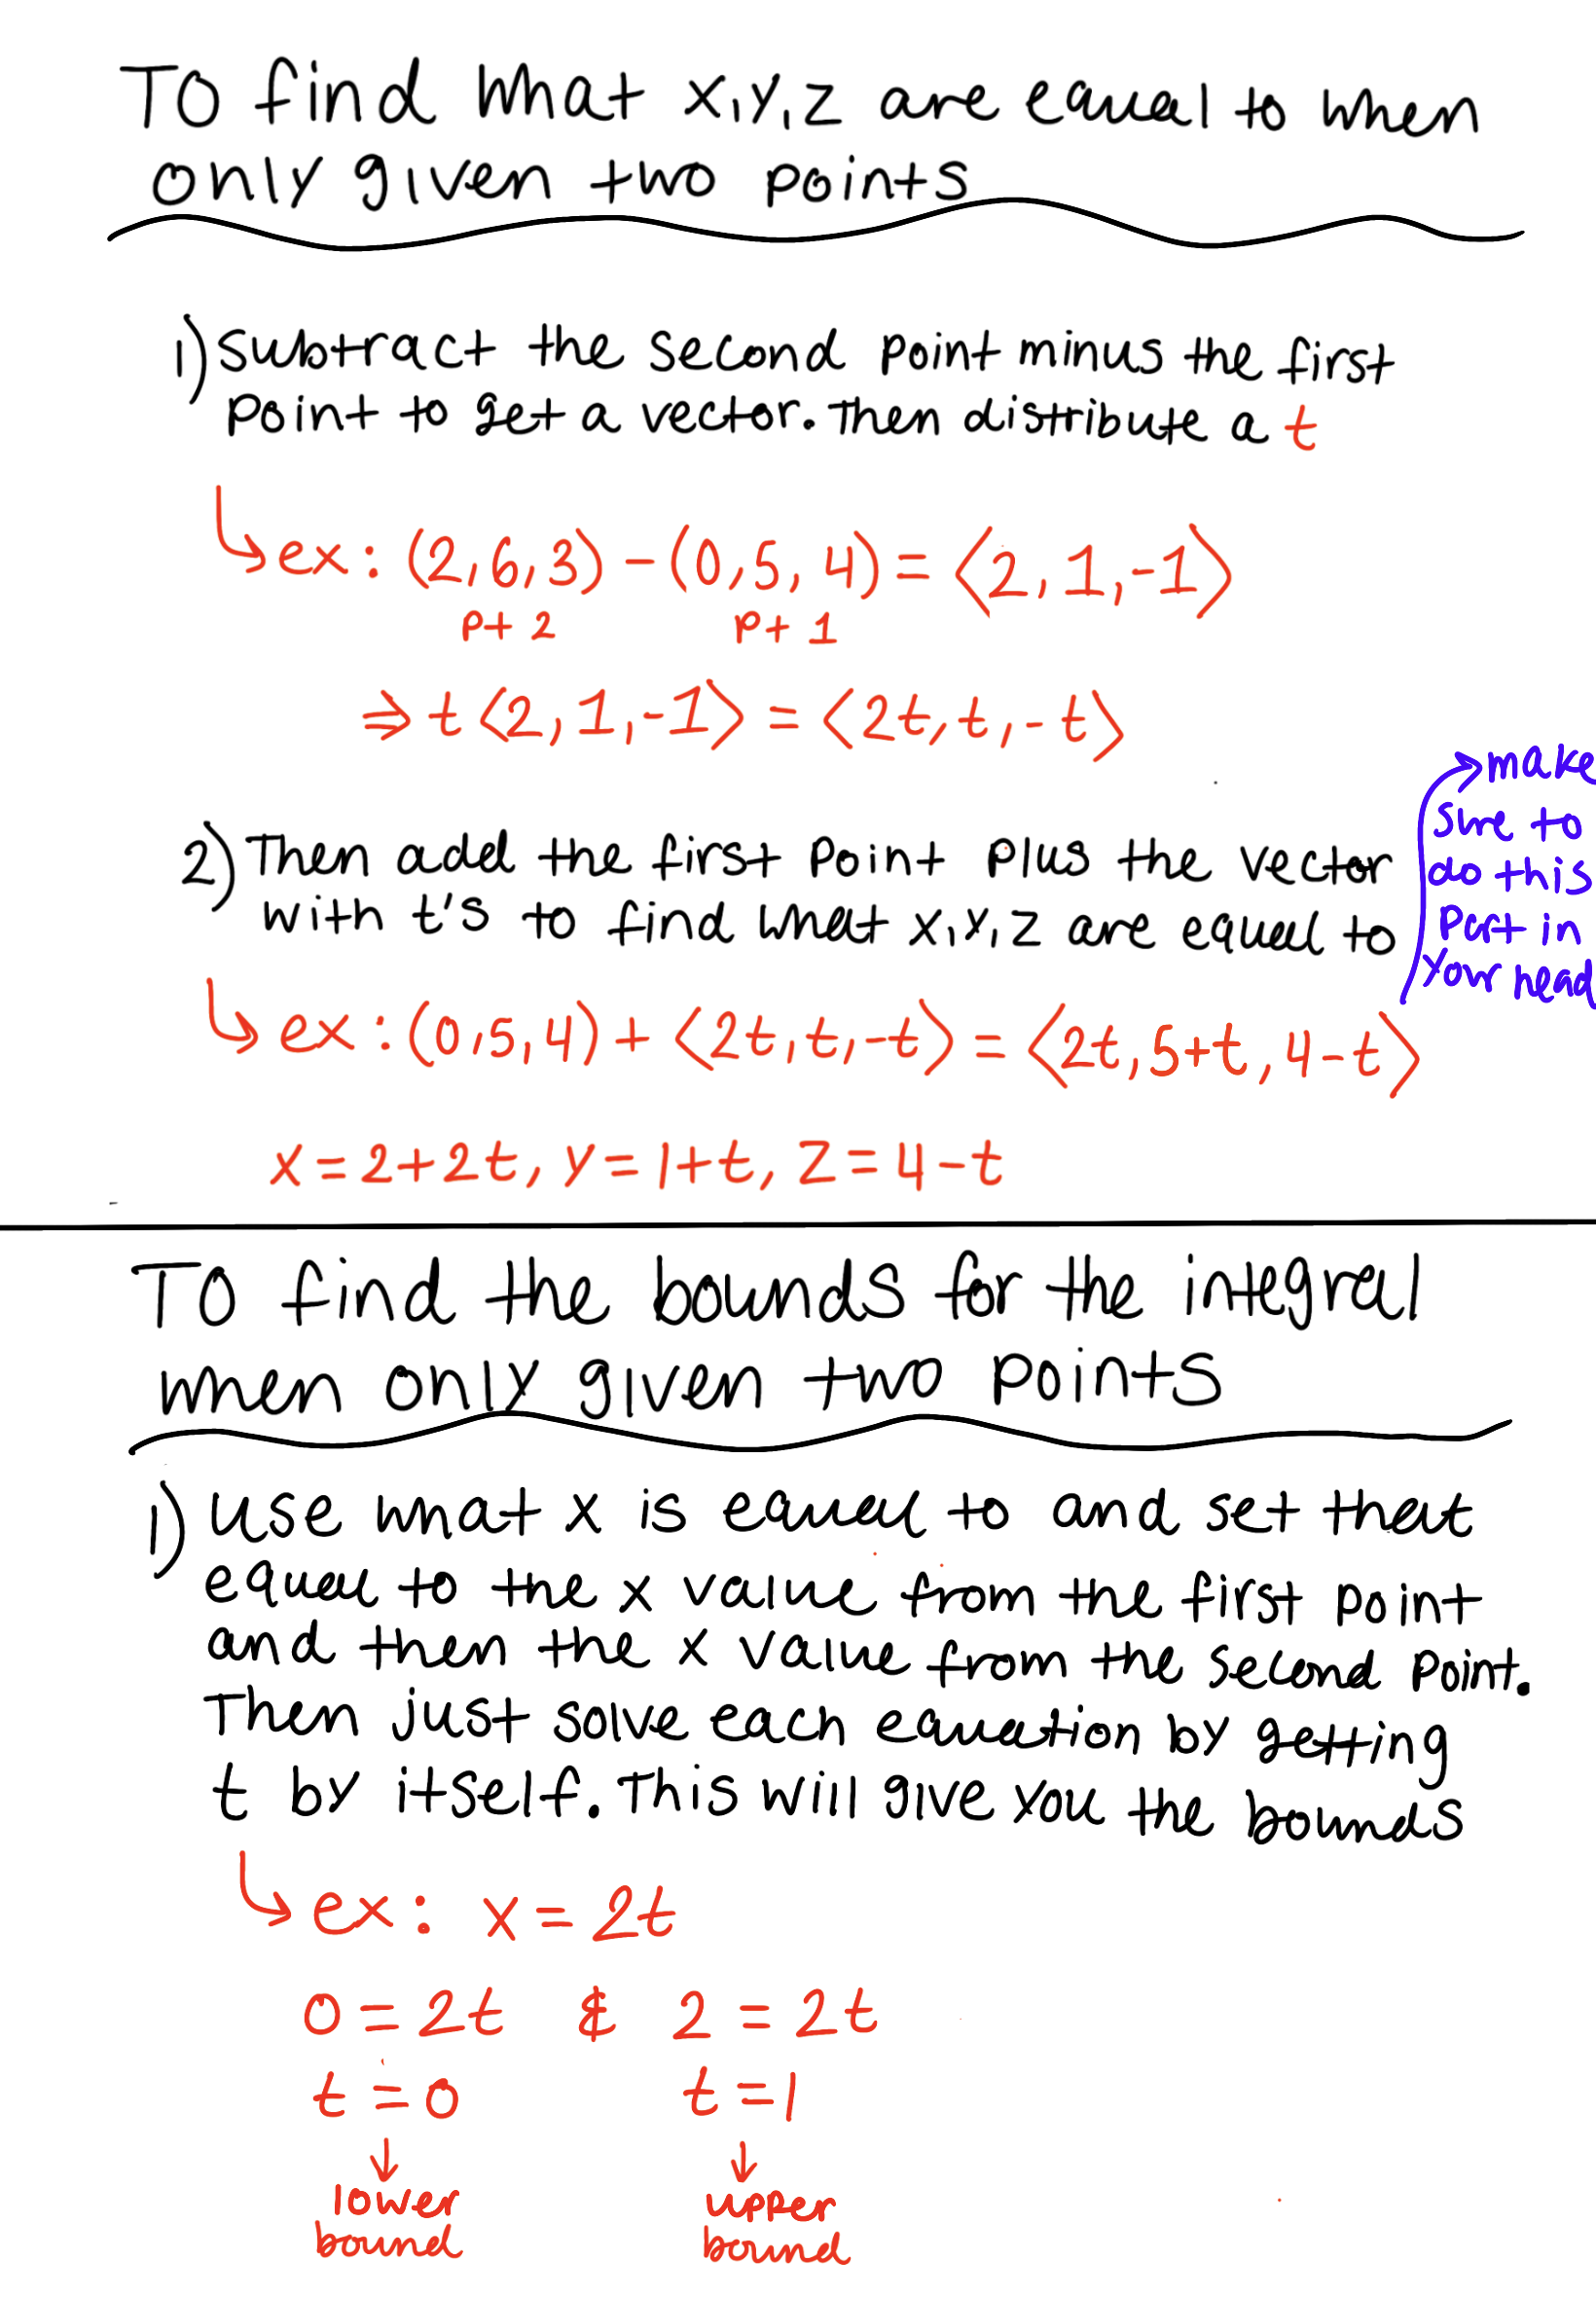 To find what x,y,z are equal to when
only given two points
1) subtract the second point minus the first
point to get a vector. Then distribute a t
ex: (2,6,3) - (0,5,4) = ⟨2,1,-1⟩
pt 2 pt 1
⇒ t⟨2,1,-1⟩ = ⟨2t,t,-t⟩
2) Then add the first point plus the vector
with t's to find what x,y,z are equal to
ex: (0,5,4) + ⟨2t,t,-t⟩ = ⟨2t,5+t,4-t⟩
make
sure to
do this
part in
your head
x=2+2t, y=1+t, z=4-t
To find the bounds for the integral
when only given two points
1) Use what x is equal to and set that
equal to the x value from the first point
and then the x value from the second point.
Then just solve each equation by getting
t by itself. This will give you the bounds
ex: x = 2t
0 = 2t & 2 = 2t
t = 0 t = 1
lower upper
bound bound